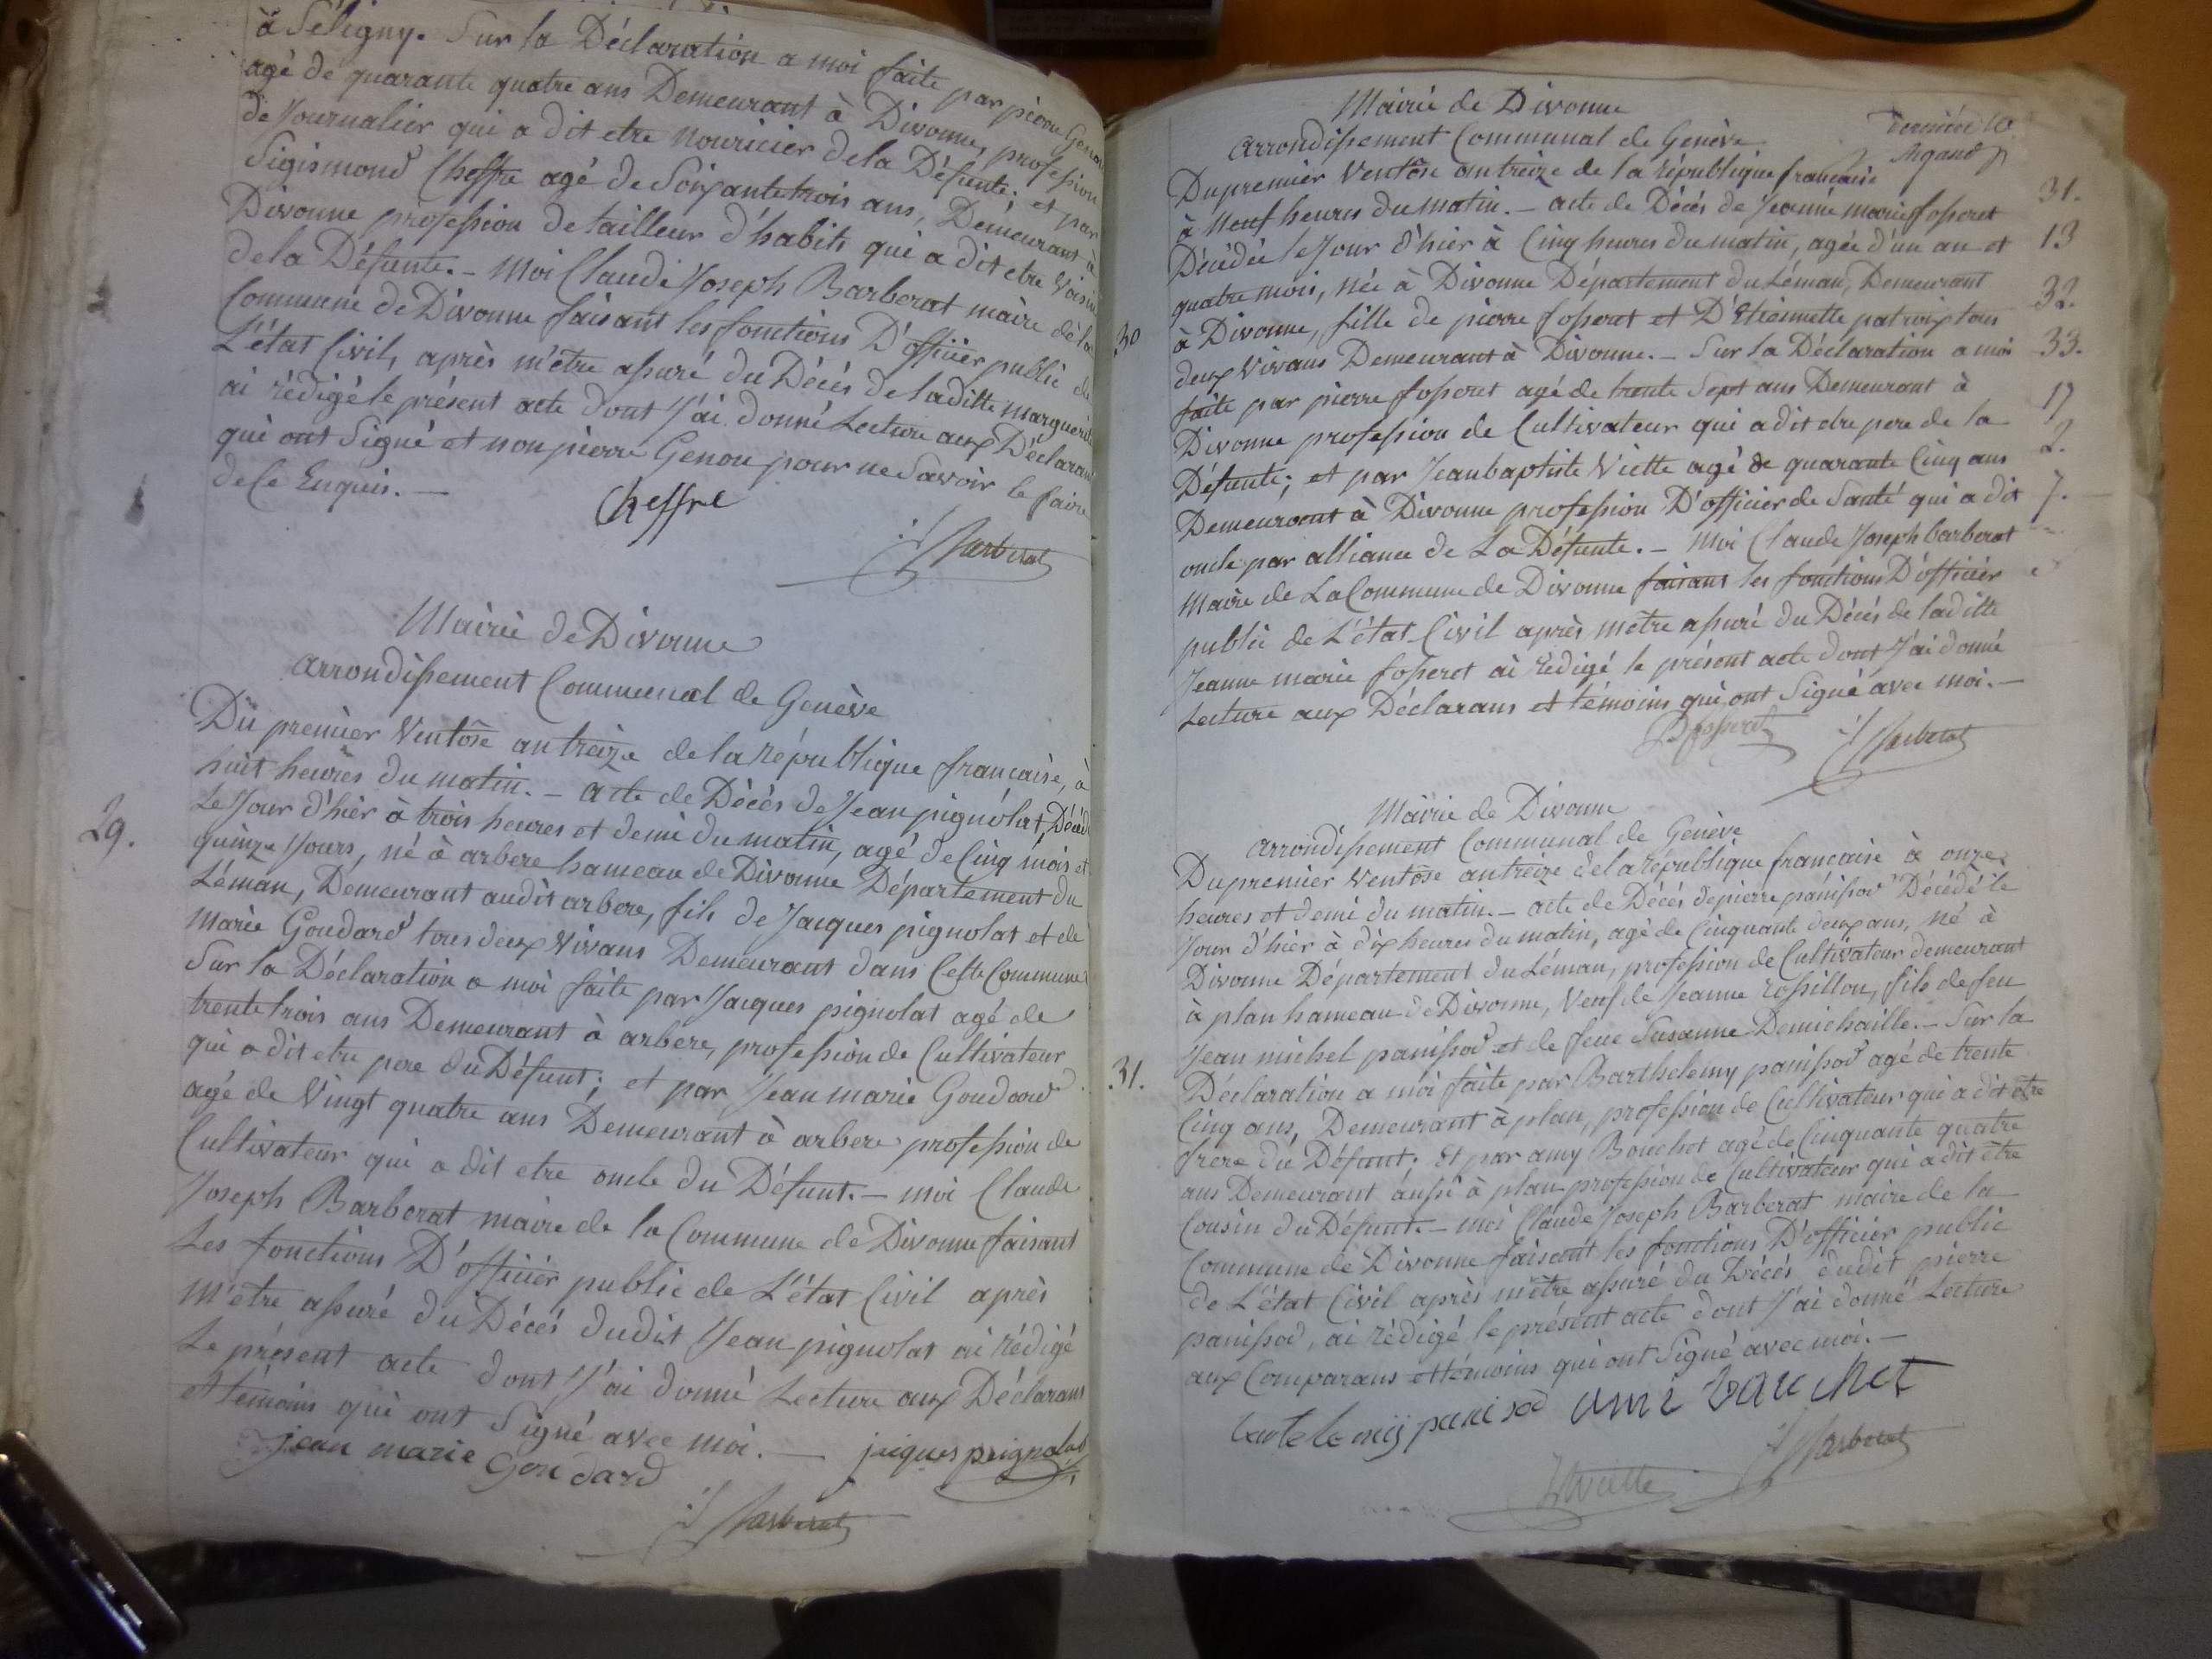 à Séligny. Sur la Déclaration a moi faite par pierre Genou
agé de quarante quatre ans Demeurant à Divonne, profession
de Journalier qui a dit etre nouricier dela Défunte; et par
Sigismond Cheffre agé de Soixante trois ans, Demeurant à
Divonne profession de tailleur d'habits qui a dit etre Voisin
dela Défunte. - Moi Claude Joseph Barberat maire de la
Commune de Divonne faisant les fonctions D'officier public de
L'état Civil, après m'etre assuré du Décés de laditte marguerite
ai rédigé le présent acte dont J'ai donné Lecture aux Déclarans
qui ont Signé et non pierre Genou pour ne Savoir le faire
de Ce Enquis. -
Cheffre
Barberat
Mairie de Divonne
arrondissement Communal de Genève
29.
Du premier Ventôse an treize de la république francaise, à
huit heures du matin. - acte de Décés de Jean pignolat, Décédé
Le Jour d'hier à trois heures et demi du matin, agé de Cinq mois et
quinze Jours, né à arbere hameau de Divonne Département du
Léman, Demeurant audit arbere, fils de Jacques pignolat et de
Marie Goudard tous deux Vivans Demeurant dans Cette Commune
Sur la Déclaration a moi faite par Jacques pignolat agé de
trente trois ans Demeurant à arbere, profession de Cultivateur
qui a dit etre pere du Défunt; et par Jean marie Goudard
agé de Vingt quatre ans Demeurant à arbere profession de
Cultivateur qui a dit etre oncle du Défunt. - moi Claude
Joseph Barberat maire de la Commune de Divonne faisant
Les fonctions D'officier public de L'état Civil après
m'etre assuré du Décés dudit Jean pignolat ai rédigé
Le présent acte dont J'ai donné Lecture aux Déclarans
et témoins qui ont Signé avec moi. -
jaques pignolat
jean marie Goudard
Barberat
Mairie de Divonne
arrondissement Communal de Genève
30
Du premier Ventôse an treize de la république francaise
à Neuf heures du matin. - acte de Décés de Jeanne marie fosseret
Décédée le Jour d'hier à Cinq heures du matin, agée d'un an et
quatre mois, née à Divonne Département du Léman, Demeurant
à Divonne, fille de pierre fosseret et D'Etiennette patroix tous
deux Vivans Demeurant à Divonne. - Sur la Déclaration a moi
faite par pierre fosseret agé de trente Sept ans Demeurant à
Divonne profession de Cultivateur qui a dit etre pere de la
Défunte; et par Jean baptiste Viette agé de quarante Cinq ans
Demeurant à Divonne profession D'officier de Santé qui a dit
oncle par alliance de La Défunte. - Moi Claude Joseph barberat
Maire de La Commune de Divonne faisant les fonctions D'officier
public de L'état Civil après m'etre assuré du Décés de laditte
Jeanne marie fosseret ai rédigé le présent acte dont J'ai donné
Lecture aux Déclarans et témoins qui ont Signé avec moi. -
P fosseret
Barberat
31.
13
32.
33.
17
2.
7.
Mairie de Divonne
arrondissement Communal de Genève
31.
Du premier Ventôse an treize de la république francaise à onze
heures et demi du matin. - acte de Décés de pierre panissod Décédé le
Jour d'hier à dix heures du matin, agé de Cinquante deux ans, né à
Divonne Département du Léman, profession de Cultivateur demeurant
à plan hameau de Divonne, Veuf de Jeanne rossillon, fils de feu
Jean michel panissod et de feue Susanne Demichaille. - Sur la
Déclaration a moi faite par Barthelemy panissod agé de trente
Cinq ans, Demeurant à plan, profession de Cultivateur qui a dit être
frere du Défunt; Et par amy Bouchet agé de Cinquante quatre
ans Demeurant aussi à plan profession de Cultivateur qui a dit être
Cousin du Défunt. - moi Claude Joseph Barberat maire de la
Commune de Divonne faisant les fonctions D'officier public
de L'état Civil après m'être assuré du Décés dudit pierre
panissod, ai rédigé le présent acte dont J'ai donné Lecture
aux Comparans et témoins qui ont Signé avec moi. -
panisod ami bouchet
Barberat
Viette